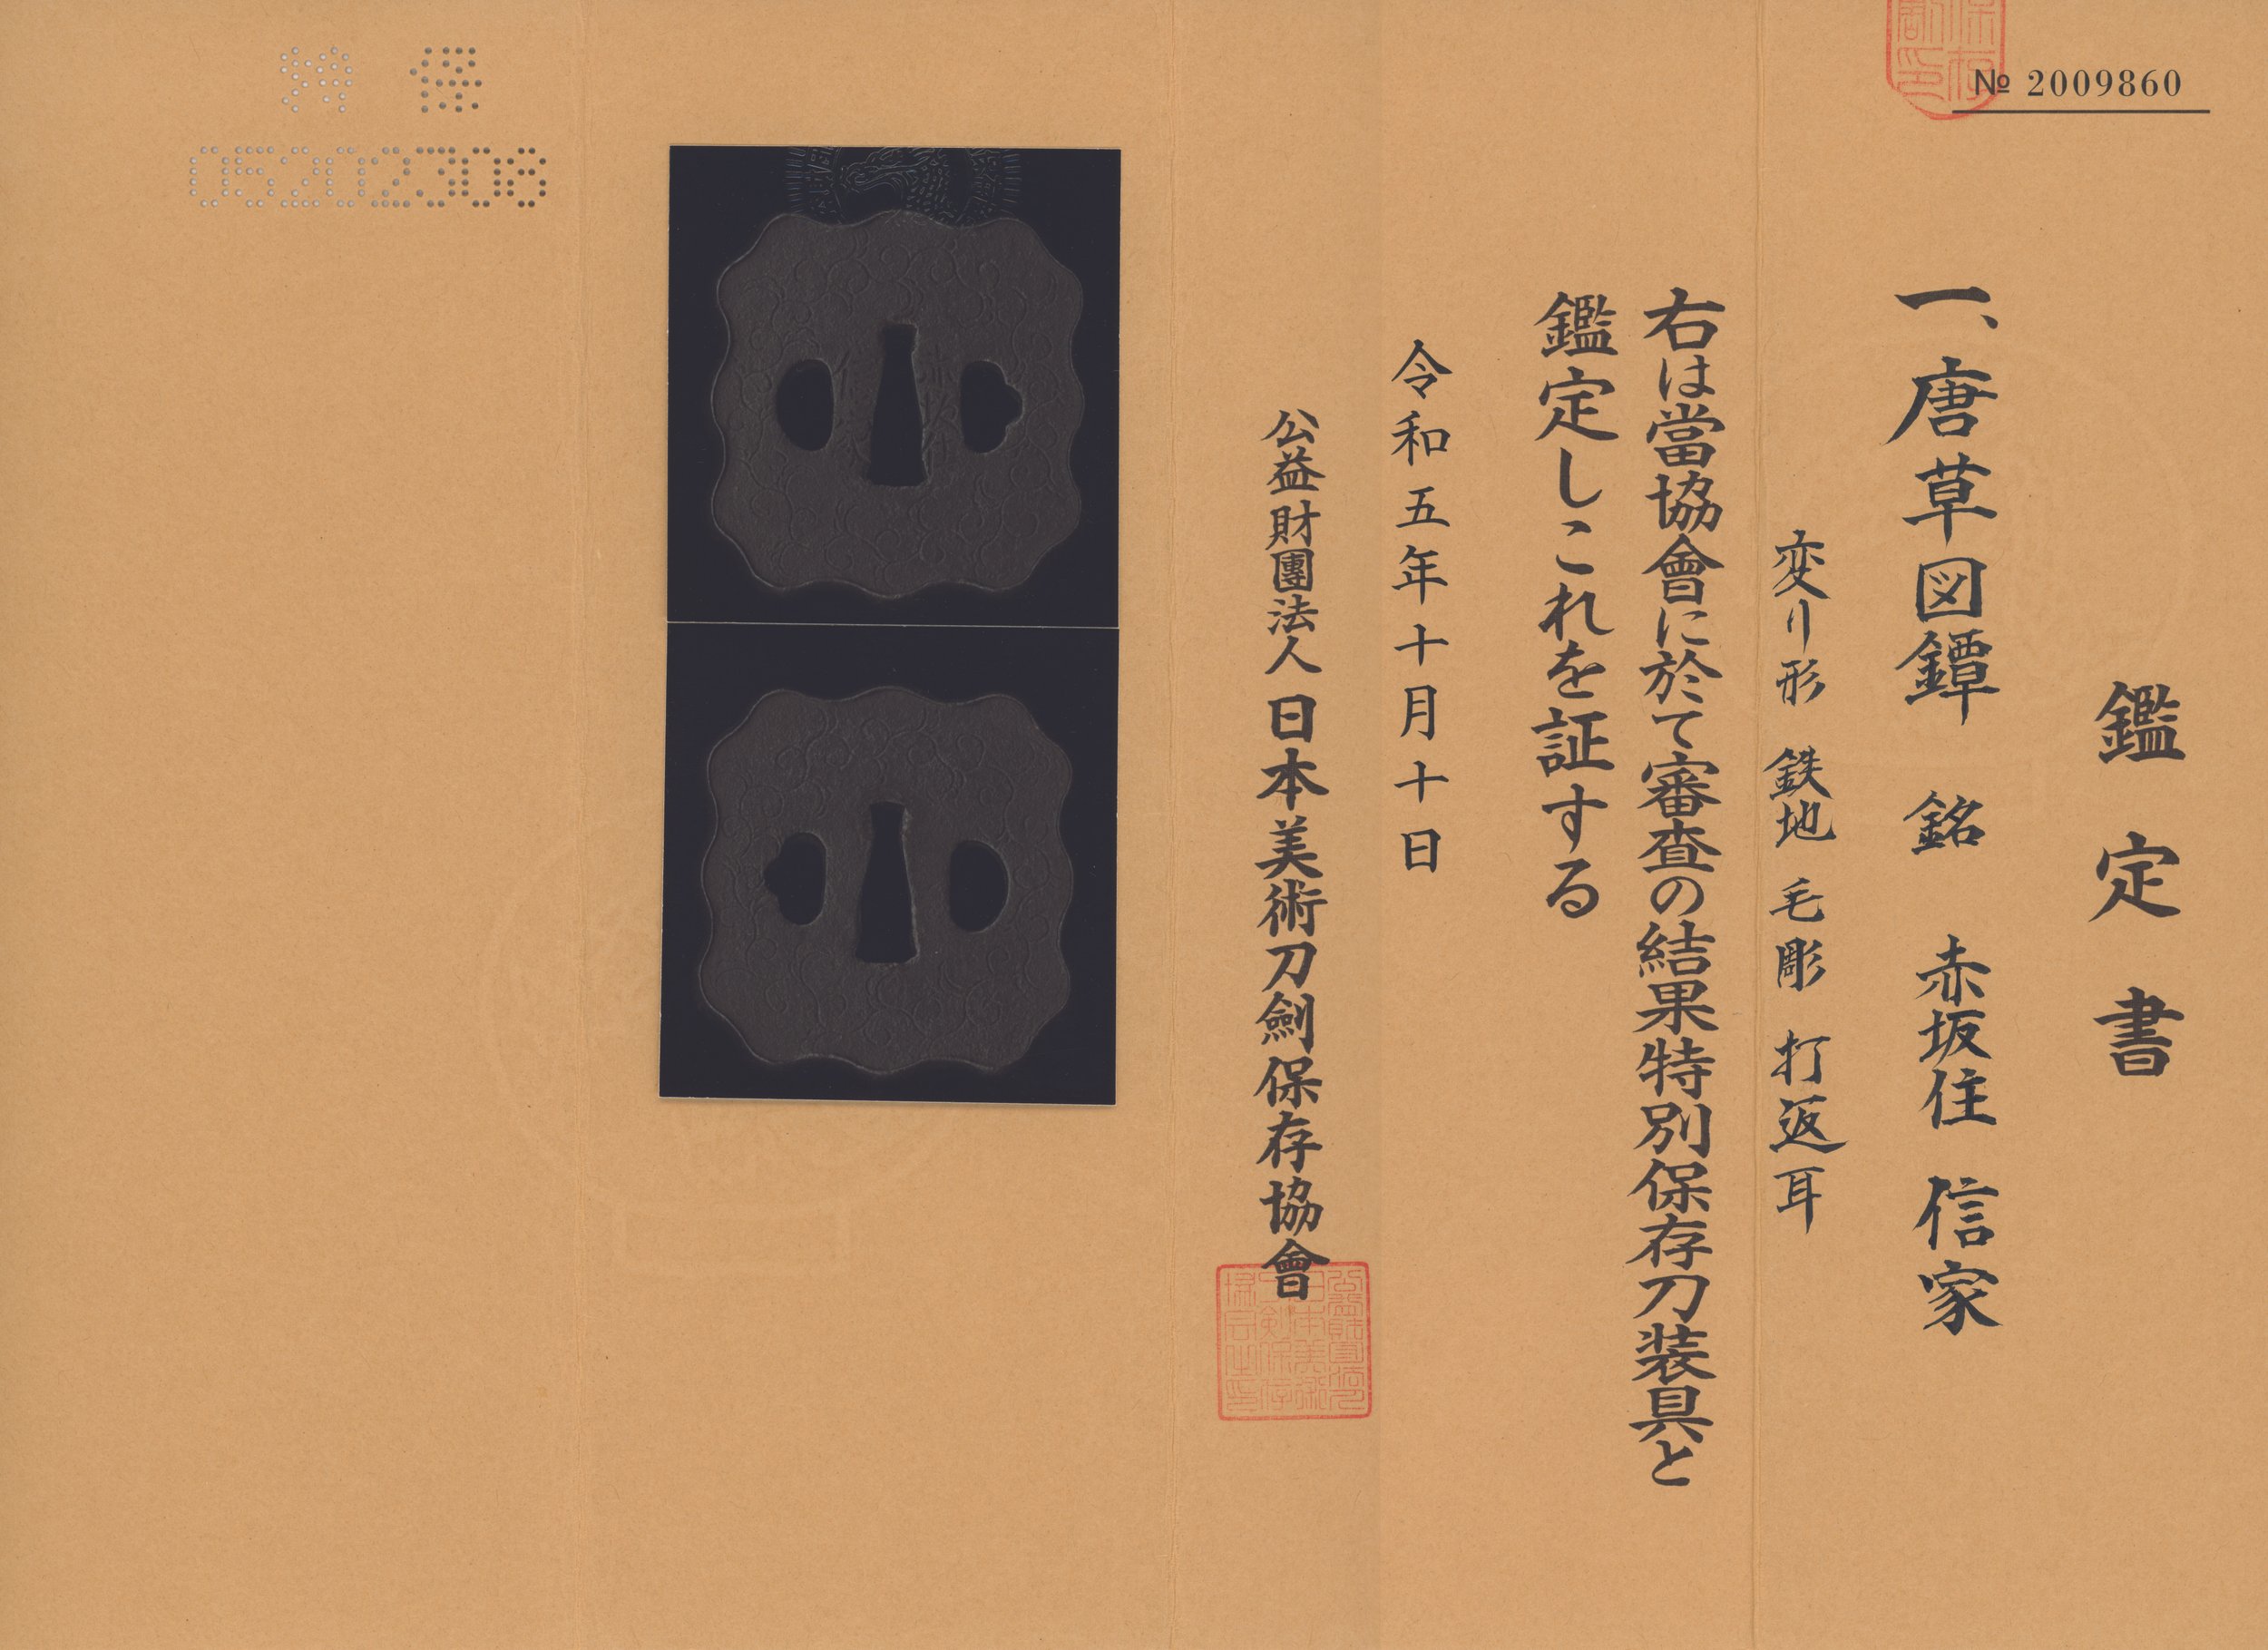 № 2009860
鑑定書
一、唐草図鐔 銘 赤坂住 信家
変り形 鉄地 毛彫 打返耳
右は當協會に於て審査の結果特別保存刀装具と
鑑定しこれを証する
令和五年十月十日
公益財團法人 日本美術刀劍保存協會